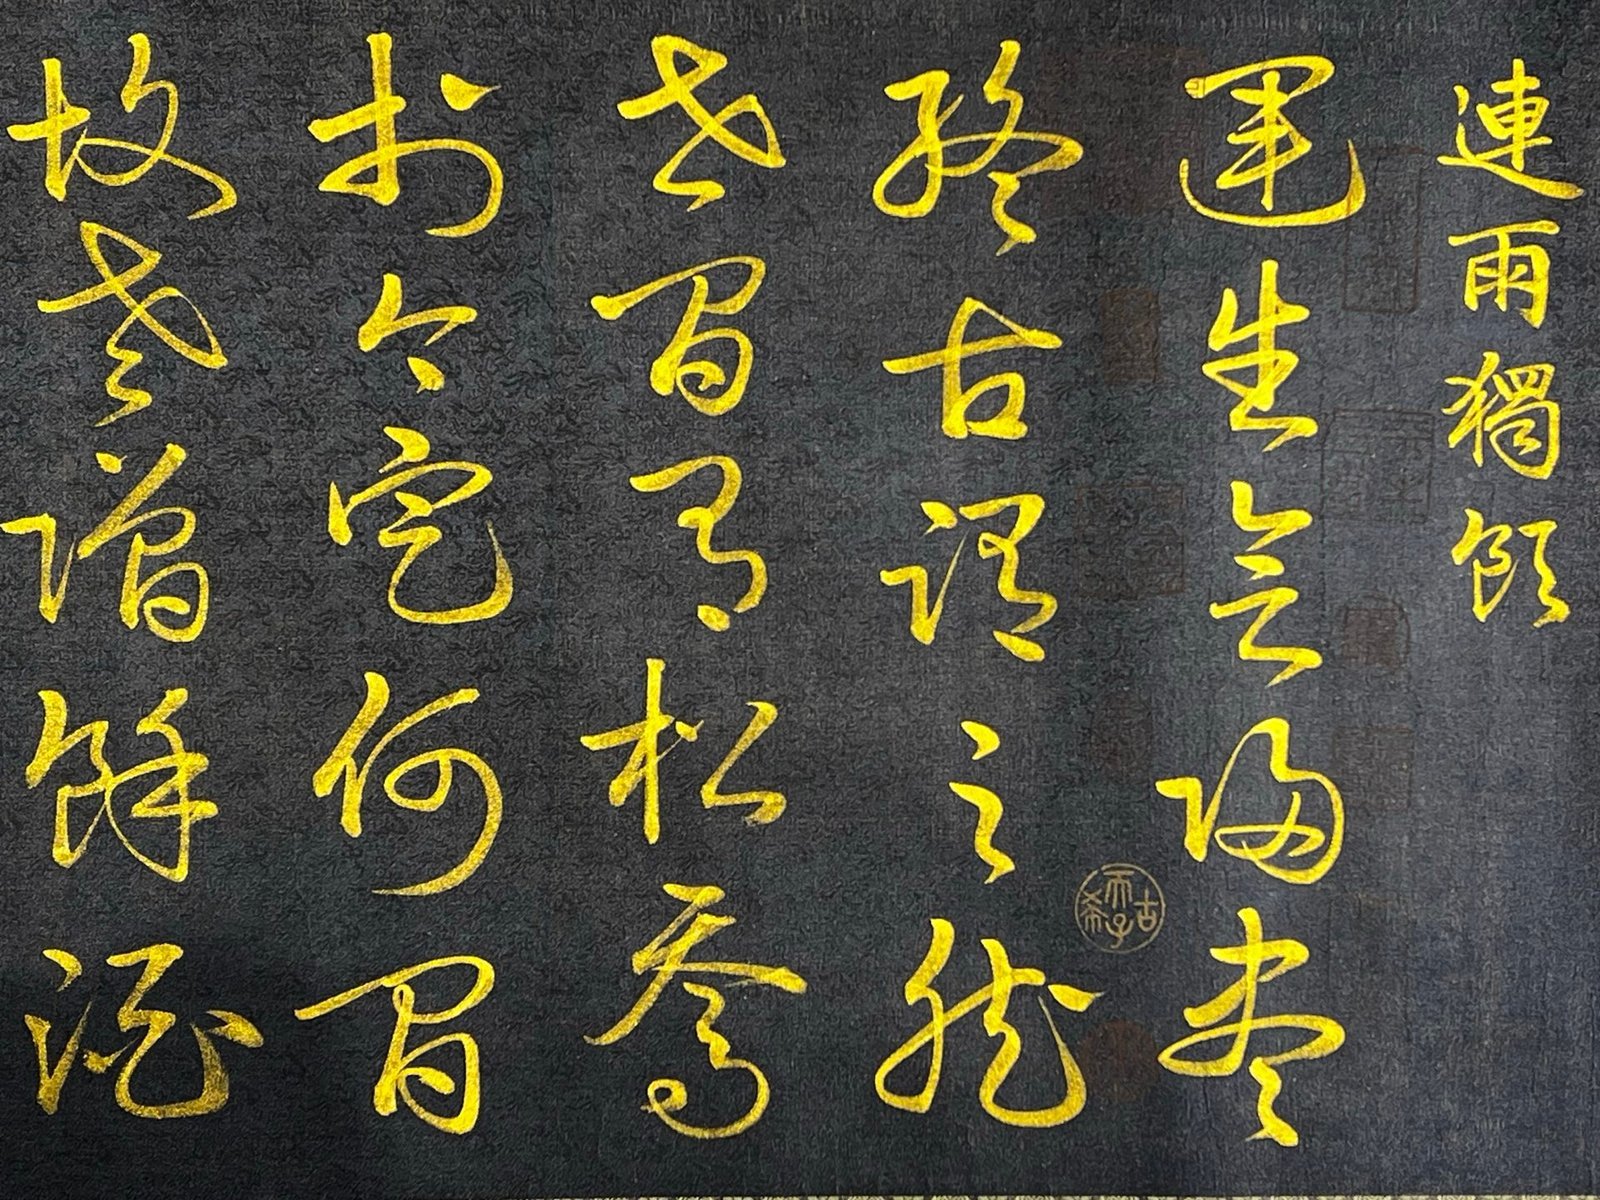 連雨獨飲
運生會歸盡
終古謂之然
世間有松喬
於今定何間
故老贈餘酒
古希天子